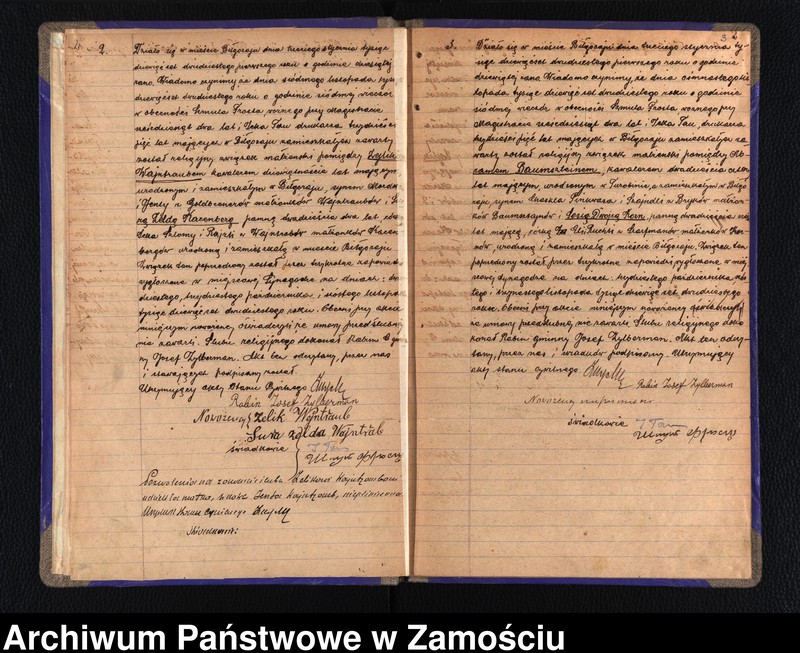 2.
Działo się w mieście Biłgoraju dnia trzeciego stycznia tysiąc
dziewięćset dwudziestego pierwszego roku o godzinie dziesiątej
rano. Wiadomo czynimy, że dnia siódmego listopada tysiąc
dziewięćset dwudziestego roku o godzinie siódmej wieczór
w obecności Szmula Frosta woźnego przy Magistracie
sześćdziesiąt dwa lat i Icka Tau drukarza trzydzieści
pięć lat mających w Biłgoraju zamieszkałych zawarty
został religijny związek małżeński pomiędzy
Wajntraubem kawalerem dziewiętnaście lat mającym
urodzonym i zamieszkałym w Biłgoraju, synem
i Jenty z Goldbrenerów małżonków Wajntraubów i Su-
rą Zeldą Kacenberg panną dwadzieścia dwa lat, córką
Icka Szlomy i Rajzli z Wajnrabów małżonków Kacen-
bergów urodzoną i zamieszkałą w mieście Biłgoraju.
Związek ten poprzedzony został przez trzykrotne zapowiedzi
ogłoszone w miejscowej Synagodze na dniach:
trzydziestego października i szóstego listopada
tysiąc dziewięćset dwudziestego roku. Obecni przy akcie
niniejszym nowożeńcy oświadczyli że umowy przedślubnej
nie zawarli. Ślubu religijnego dokonał Rabin
Josef Zylberman. Akt ten odczytany, przez nas
i stawających podpisany został.
Utrzymujący Akty Stanu Cywilnego
Rabin Josef Zylberman
Nowożeńcy Zelik Wajntraub
Sura Zelda Wajntrab
świadkowie J Tau
Pozwolenie na zawarcie ślubu
udzieliła matka, niepiśmienna
Utrzym Akta Stanu Cywilnego
3
3.
Działo się w mieście Biłgoraju dnia trzeciego stycznia ty-
siąc dziewięćset dwudziestego pierwszego roku o godzinie
dziesiątej rano. Wiadomo czynimy, że dnia listo-
pada tysiąc dziewięćset dwudziestego roku o godzinie
siódmej wieczór w obecności Szmula Frosta woźnego przy
Magistracie sześćdziesiąt dwa lat i Icka Tau, drukarza
trzydzieści pięć lat mających w Biłgoraju zamieszkałych za-
warty został religijny związek małżeński pomiędzy
Baumszteinem, kawalerem dwadzieścia
lat mającym, urodzonym w a zamieszkałym w Biłgo-
raju, synem i Szajndli z Bryków małżon-
ków i panną dwadzieścia
lat mającą, córką i Ruchli z Kaufmanów małżonków
urodzoną i zamieszkałą w mieście Biłgoraju. Związek ten
poprzedzony został przez trzykrotne zapowiedzi ogłoszone w miej-
scowej Synagodze na dniach: trzydziestego października,
listopada tysiąc dziewięćset dwudziestego
roku. Obecni przy akcie niniejszym nowożeńcy oświadczyli,
że umowy przedślubnej nie zawarli. Ślubu religijnego doko-
nał Rabin gminny Josef Zylberman. Akt ten odczy-
tany, przez nas i świadków podpisany. Utrzymujący
akty stanu cywilnego
Rabin Josef Zylberman
Nowożeńcy
świadkowie J Tau
Archiwum Państwowe w Zamościu